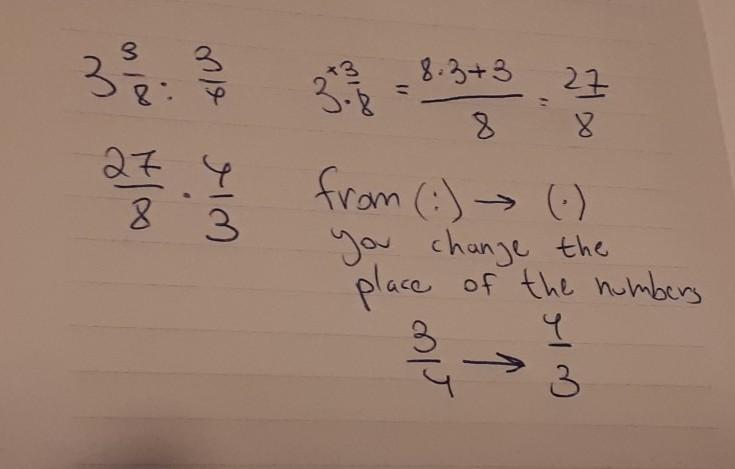 3 3/8 : 3/4
3 ×3/·8 = 8·3+3/8 = 27/8
27/8 · 4/3
from (:) → (·)
you change the
place of the numbers
3/4 → 4/3